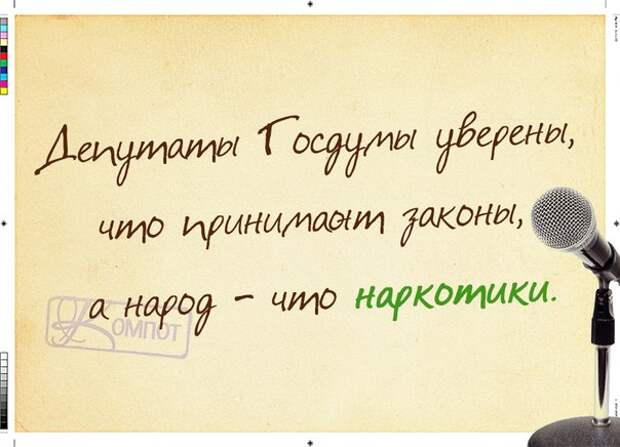 Депутаты Госдумы уверены,
что принимают законы,
а народ – что наркотики.
Компот